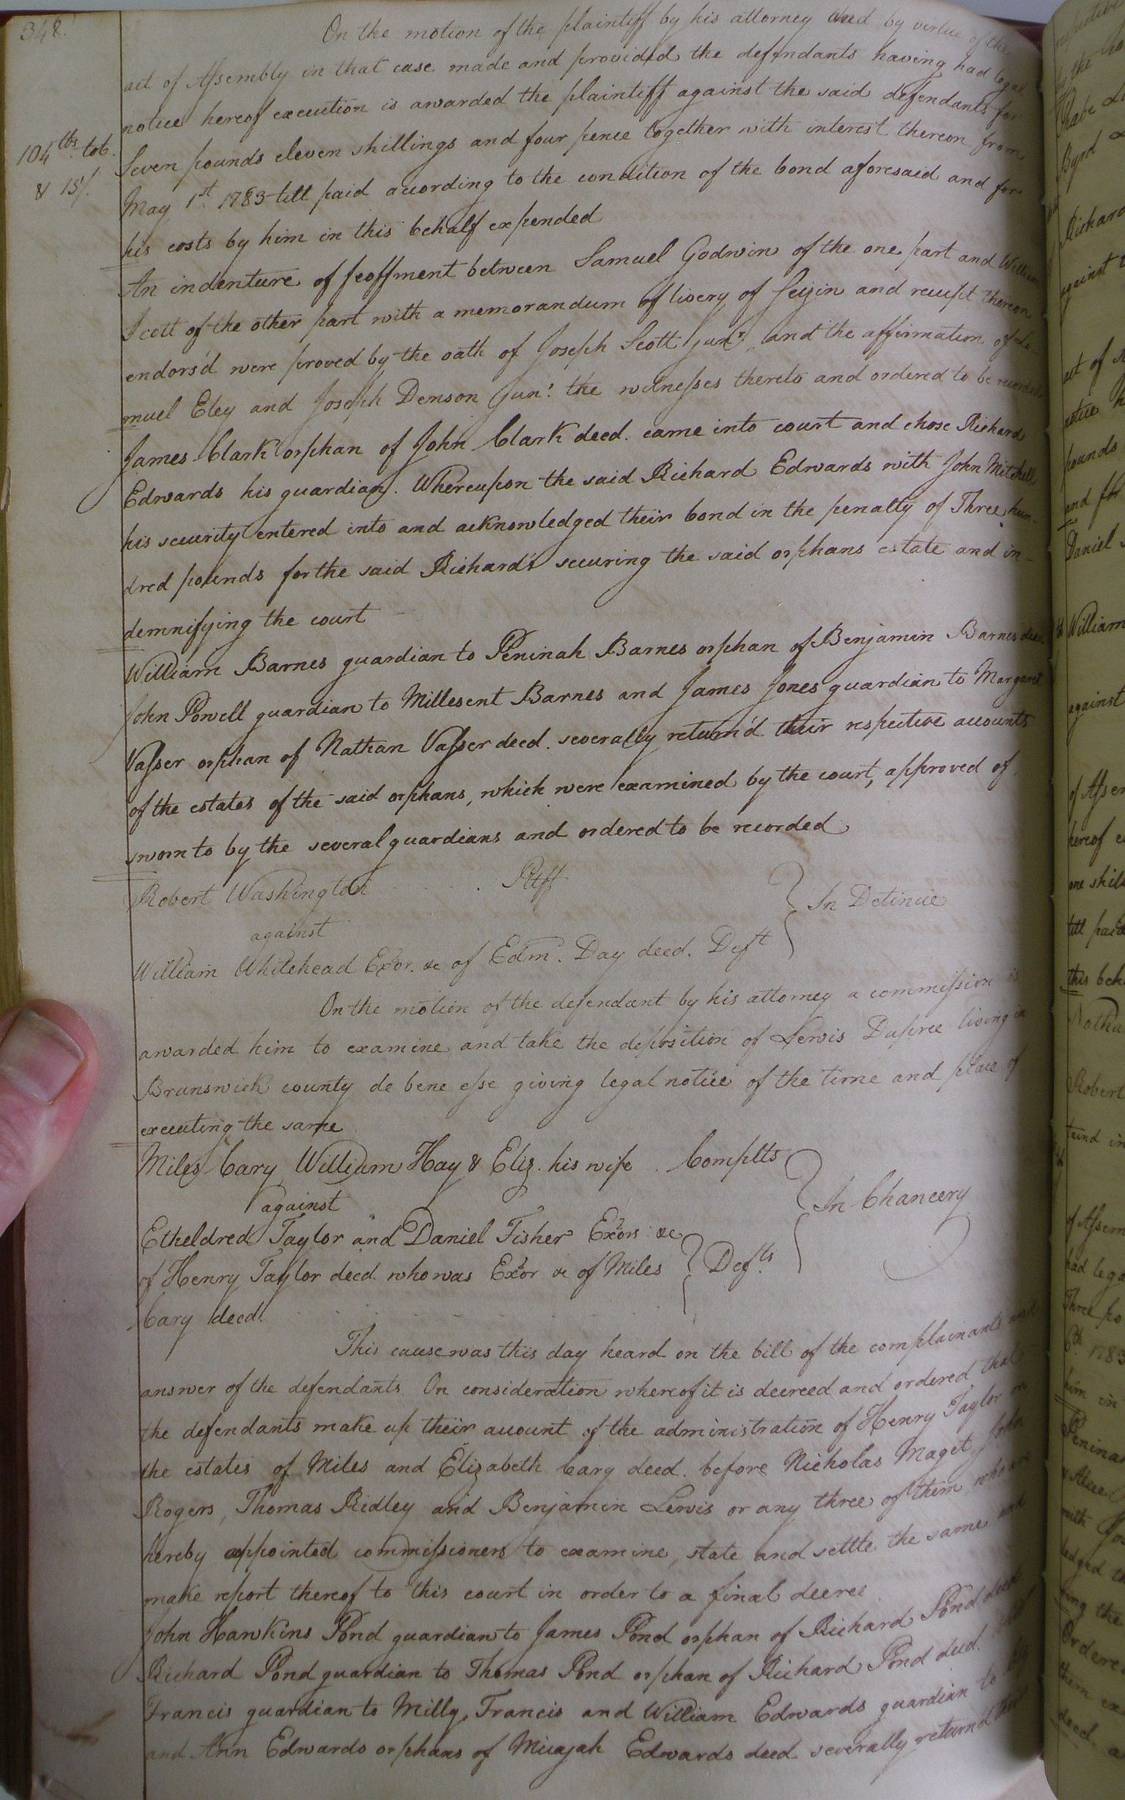 348.
On the motion of the plaintiff by his attorney and by virtue of the
act of Assembly in that case made and provided the defendants having had legal
notice hereof execution is awarded the plaintiff against the said defendants for
104 lbs. tob.
& 15/.
Seven pounds eleven shillings and four pence together with interest thereon from
May 1st. 1783 till paid according to the condition of the bond aforesaid and for
his costs by him in this behalf expended
An indenture of feoffment between Samuel Godwin of the one part and William
Scott of the other part with a memorandum of livery of seizin and receipt thereon
endors'd were proved by the oath of Joseph Scott Junr. and the affirmation of
muel Eley and Joseph Denson Junr. the witnesses thereto and ordered to be recorded
James Clark orphan of John Clark deed. came into court and chose Richard
Edwards his guardian. Whereupon the said Richard Edwards with John Mitchell
his security entered into and acknowledged their bond in the penalty of Three hun-
dred pounds for the said Richard's securing the said orphans estate and in-
demnifying the court
William Barnes guardian to Peninah Barnes orphan of Benjamin Barnes deed
John Powell guardian to Millesent Barnes and James Jones guardian to Margaret
Vasser orphan of Nathan Vasser deed. severally return'd their respective accounts
of the estates of the said orphans, which were examined by the court, approved of
sworn to by the several guardians and ordered to be recorded
Robert Washington Pltff
against
In Detinue
William Whitehead Exor. &c of Edm. Day deed. Deft
On the motion of the defendant by his attorney a commission is
awarded him to examine and take the deposition of Lewis Dupree living in
Brunswick county de bene esse giving legal notice of the time and place of
executing the same
Miles Cary, William Hay & Eliz. his wife Complts
against
In Chancery
Etheldred Taylor and Daniel Fisher Exors &c
of Henry Taylor deed. who was Exor &c of Miles Defts
Cary deed.
This cause was this day heard on the bill of the complainants and
answer of the defendants On consideration whereof it is decreed and ordered that
the defendants make up their account of the administration of Henry Taylor on
the estates of Miles and Elizabeth Cary deed. before Nicholas Maget, John
Rogers, Thomas Ridley and Benjamin Lewis or any three of them, who are
hereby appointed commissioners to examine, state and settle the same and
make report thereof to this court in order to a final decree
John Hawkins Pond guardian to James Pond orphan of Richard Pond deed
Richard Pond guardian to Thomas Pond orphan of Richard Pond deed.
Francis guardian to Milly Francis and William Edwards guardian to
and Ann Edwards orphans of Micajah Edwards deed severally return'd their